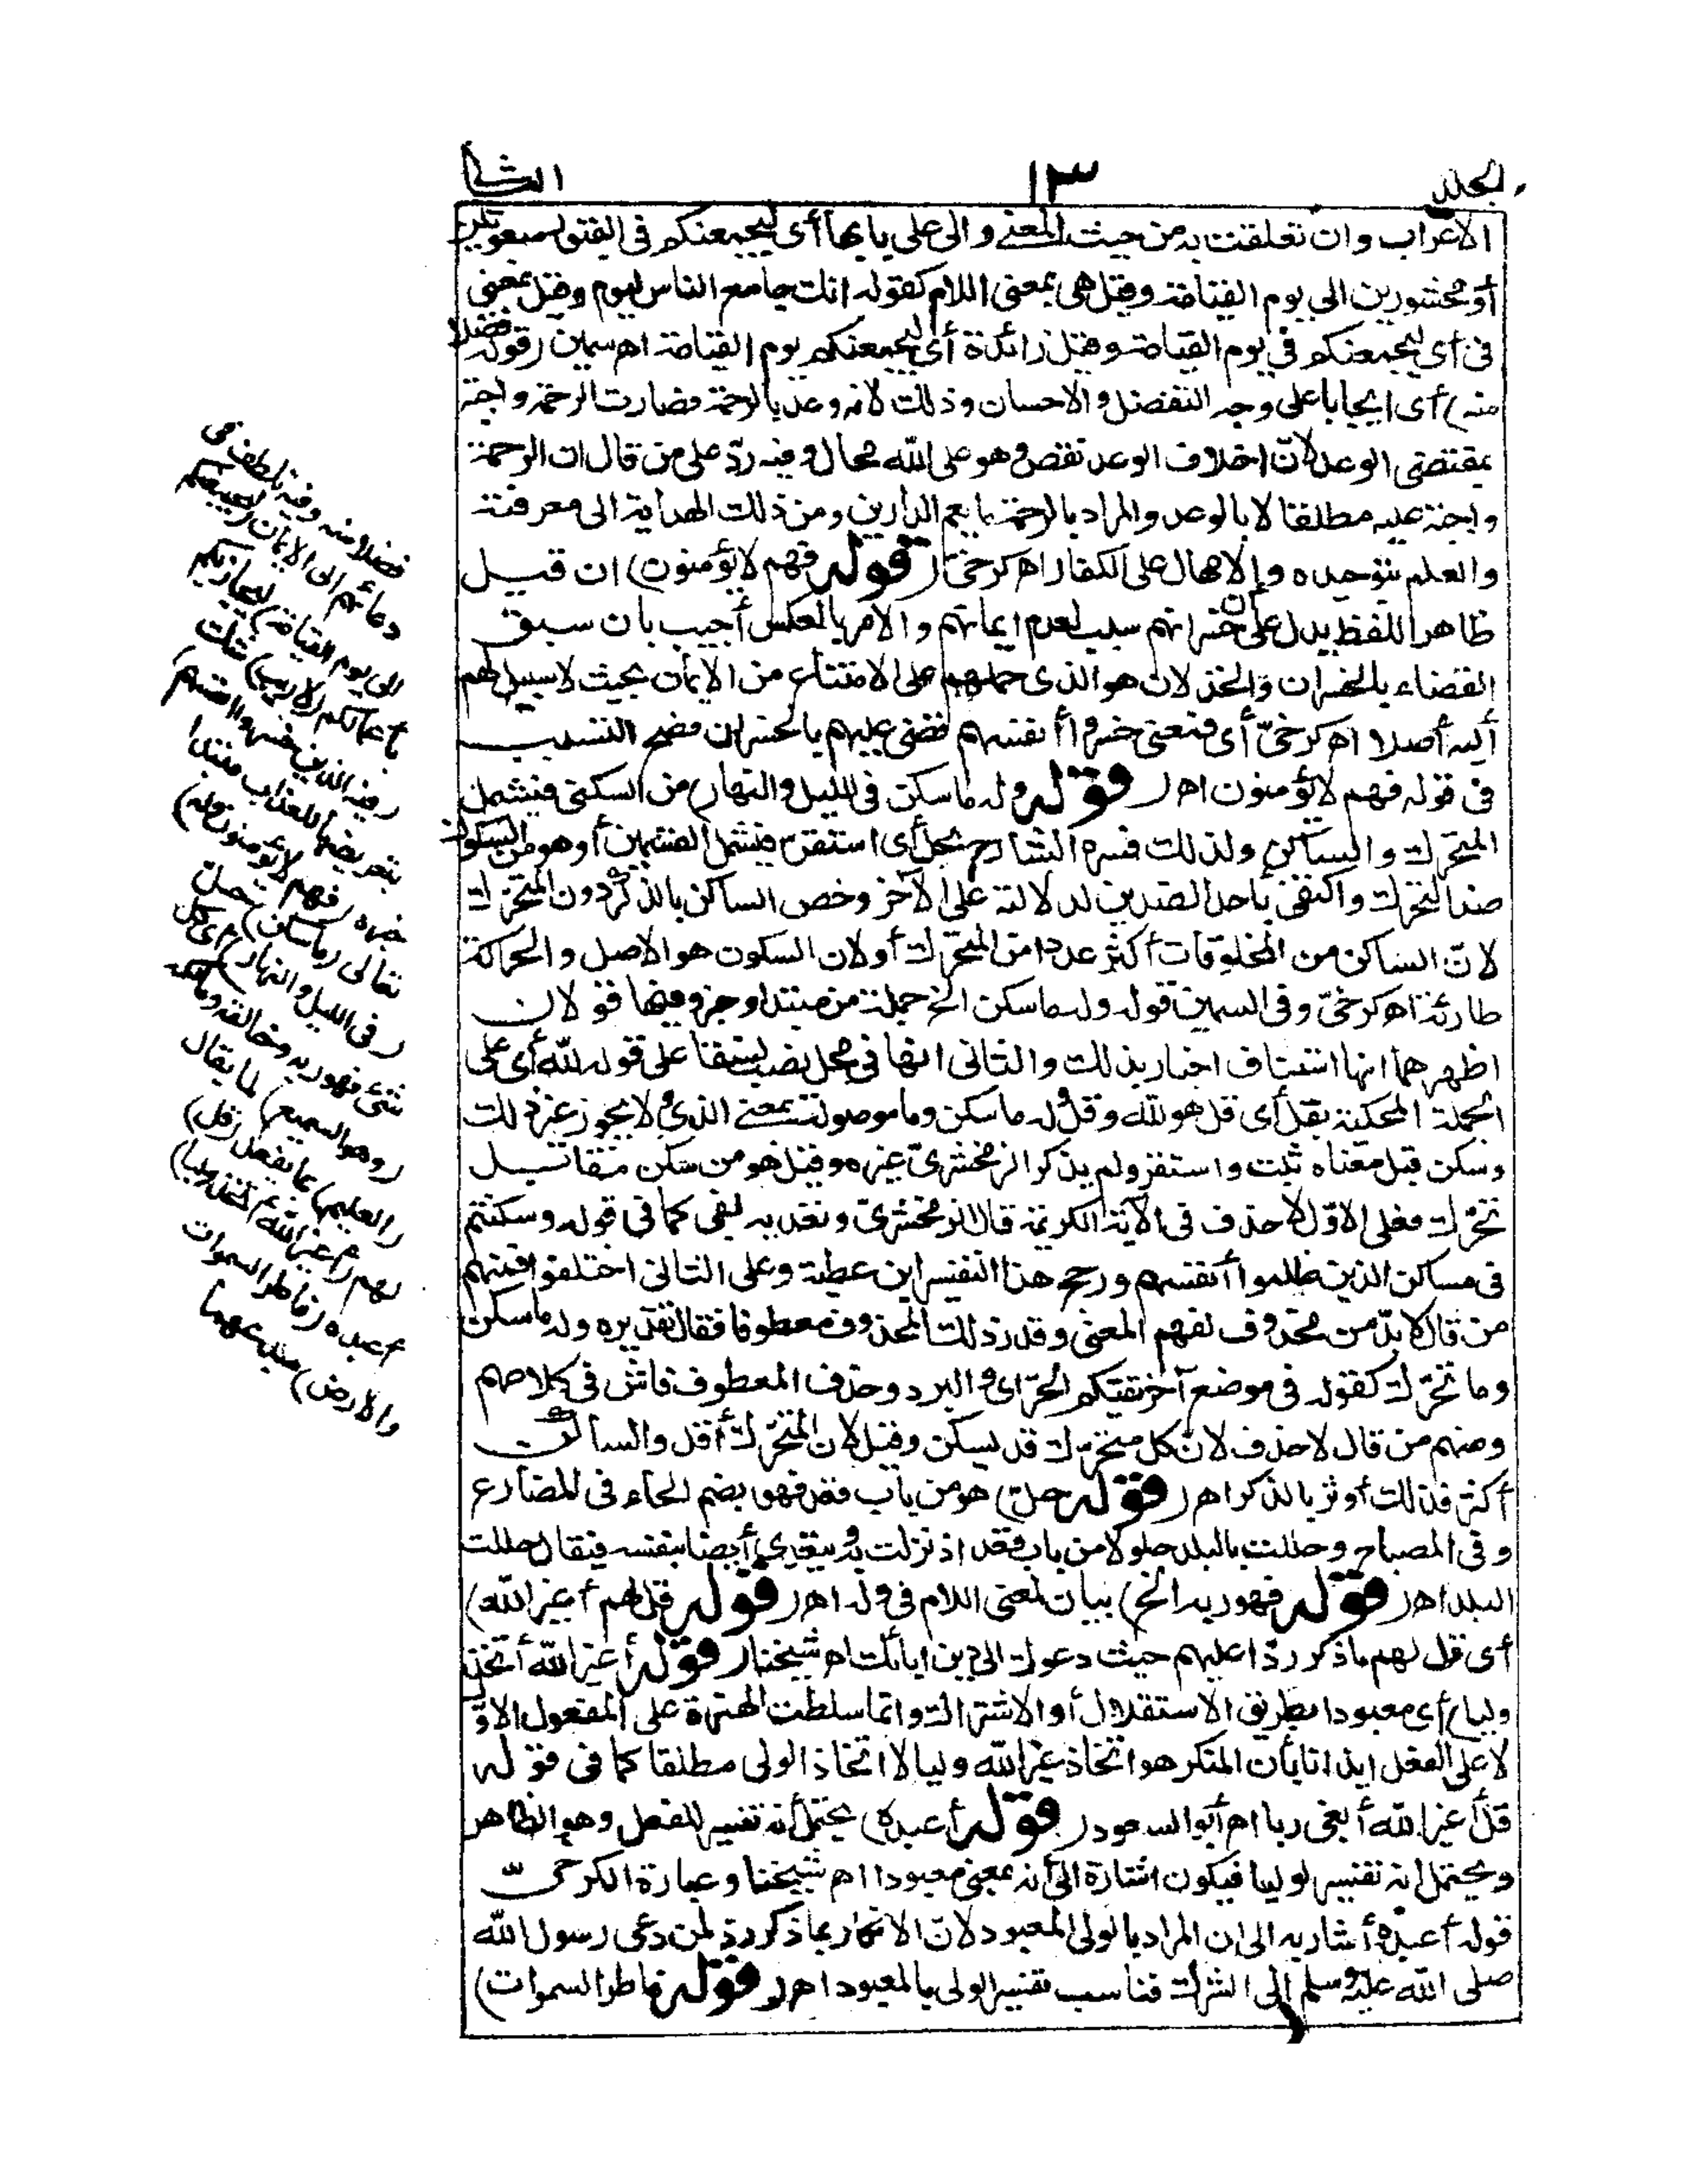 الجلد ١٣ الثا
الاعراب وان تعلقت به من حيث المعنى والى على بابها أى ليجمعنكم فى القبور مبعوثين
أو محشورين الى يوم القيامة وقيل هى بمعنى اللام كقوله انك جامع الناس ليوم وقيل بمعنى
فى أى ليجمعنكم فى يوم القيامة وقيل زائدة أى ليجمعنكم يوم القيامة اهـ سمين (قوله فضلا
منه) أى ايجابا على وجه التفضل والاحسان وذلك لانه وعد بالرحمة فصارت الرحمة واجبة
بمقتضى الوعد لانّ اخلاف الوعد نقص وهو على الله محال وفيه ردّ على من قال ان الرحمة
واجبة عليه مطلقا لا بالوعد والمراد بالرحمة ما يعم الدارين ومن ذلك الهداية الى معرفته
والعلم بتوحيده والامهال على الكفار اهـ كرخىّ (قوله فهم لا يؤمنون) ان قيل
ظاهر اللفظ يدل على ان خسرانهم سبب لعدم ايمانهم والامر بالعكس أجيب بان سبق
القضاء بالخسران والخذلان هو الذى حملهم على الامتناع من الايمان بحيث لا سبيل لهم
اليه أصلا اهـ كرخىّ أى فمعنى خسروا أنفسهم قضى عليهم بالخسران فصح التسبب
فى قوله فهم لا يؤمنون اهـ (قوله وله ما سكن فى الليل والنهار) من السكنى فيشمل
المتحرك والساكن ولذلك فسره الشارح بحل أى استقرّ فيشمل القسمين أو هو من السكون
ضد التحرك واكتفى بأحد الضدين لدلالته على الآخر وخص الساكن بالذكر دون المتحرك
لانّ الساكن من المخلوقات أكثر عددا من المتحرك أو لان السكون هو الاصل والحركة
طارئة اهـ كرخىّ وفى السمين قوله وله ما سكن الخ جملة من مبتدا وخبر وفيها قولان
اظهرهما انها استئناف اخبار بذلك والثانى انها فى محل نصب نسقا على قوله لله أى على
الجملة المحكية بقل أى قل هو لله وقل وله ما سكن وما موصولة بمعنى الذى ولا يجوز غير ذلك
وسكن قيل معناه ثبت واستقر ولم يذكر الزمخشرىّ غيره وقيل هو من سكن مقابل
تحرّك فعلى الاوّل لا حذف فى الآية الكريمة قال الزمخشرىّ وتعديه بفى كما فى قوله وسكنتم
فى مساكن الذين ظلموا أنفسهم ورجح هذا التفسير ابن عطية وعلى الثانى اختلفوا فمنهم
من قال لا بدّ من محذوف لفهم المعنى وقدر ذلك المحذوف معطوفا فقال تقديره وله ما سكن
وما تحرّك كقوله فى موضع آخر تقيكم الحرّ اى والبرد وحذف المعطوف فاش فى كلامهم
ومنهم من قال لا حذف لان كل متحرك قد يسكن وقيل لان المتحرّك أقل والساكن
أكثر فلذلك أوثر بالذكر اهـ (قوله حلّ) هو من باب قعد فهو بضم الحاء فى المضارع
وفى المصباح وحللت بالبلد حلولا من باب قعد اذ نزلت به ويتعدى أيضا بنفسه فيقال حللت
البلد اهـ (قوله فهو ربه الخ) بيان لمعنى اللام فى وله اهـ (قوله قل لهم أغير الله)
أى قل لهم ما ذكر ردّا عليهم حيث دعوك الى دين آبائك اهـ شيخنا (قوله أغير الله أتخذ
وليا) أى معبودا بطريق الاستقلال أو الاشتراك وانما سلطت الهمزة على المفعول الاوّل
لا على الفعل ايذانا بأن المنكر هو اتخاذ غير الله وليا لا اتخاذ الولى مطلقا كما فى قوله
قل أغير الله أبغى ربا اهـ أبو السعود (قوله أعبده) يحتمل أنه تفسير للفعل وهو الظاهر
ويحتمل انه تفسير لوليا فيكون اشارة الى أنه بمعنى معبودا اهـ شيخنا وعبارة الكرخىّ
قوله أعبده أشار به الى ان المراد بالولى المعبود لانّ الانكار بما ذكر ردّ لمن دعى رسول الله
صلى الله عليه وسلم الى الشرك فناسب تفسير الولى بالمعبود اهـ (قوله فاطر السموات)
فضلا منه وفيه تلطف فى
دعائهم الى الايمان (ليجمعنكم
الى يوم القيامة) ليجازيكم
باعمالكم (لا ريب) شك
(فيه الذين خسروا أنفسهم)
بتعريضها للعذاب مبتدأ
خبره (فهم لا يؤمنون وله)
تعالى (ما سكن) حلّ
(فى الليل والنهار) أى كل
شئ فهو ربه وخالقه ومالكه
(وهو السميع) لما يقال
(العليم) بما يفعل (قل)
لهم (أغير الله أتخذ وليا)
أعبده (فاطر السموات
والارض) مبدعهما